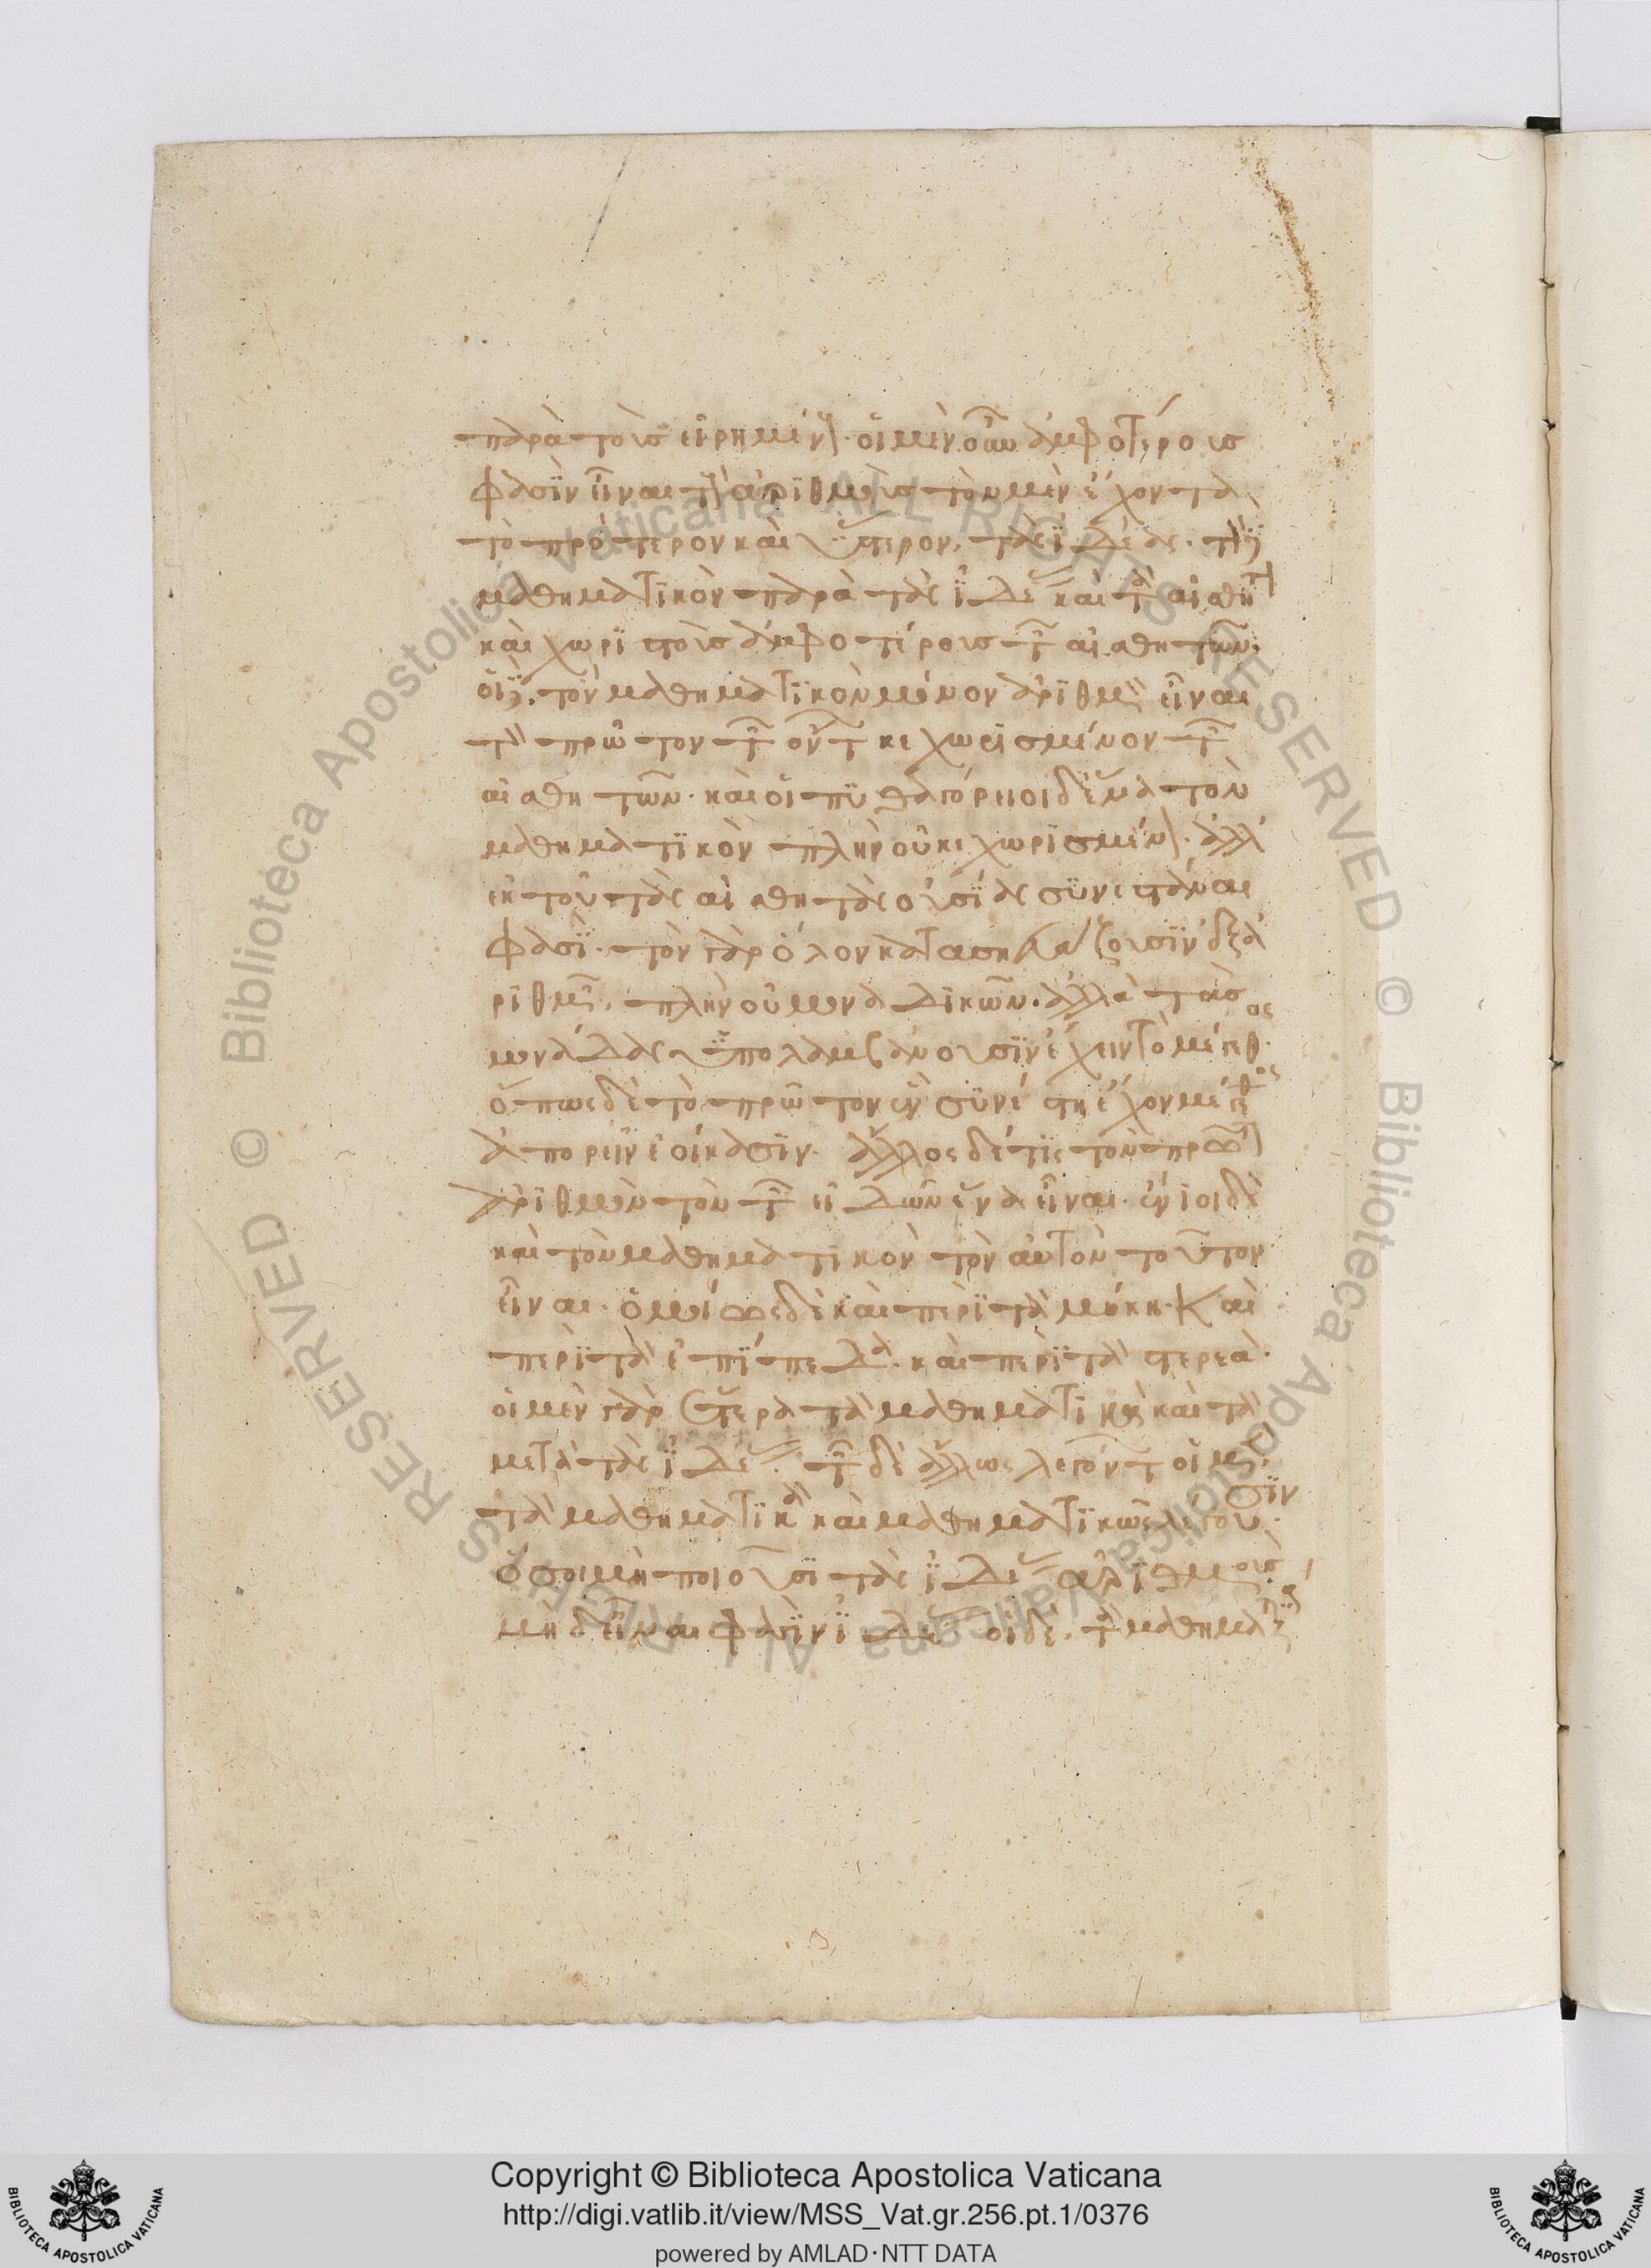 παρὰ τοὺς εἰρημένους. οἱ μὲν οὖν ἀμφοτέρους
φασὶν εἶναι τοὺς ἀριθμοὺς τὸν μὲν ἔχοντα
τὸ πρότερον καὶ ὕστερον, τὰς ἰδέας. τὸν δὲ
μαθηματικὸν παρὰ τὰς ἰδέας καὶ τὰ αἰσθητὰ
καὶ χωριστοὺς ἀμφοτέρους τῶν αἰσθητῶν.
οἱ δὲ τὸν μαθηματικὸν μόνον ἀριθμὸν εἶναι
τὸν πρῶτον τῶν ὄντων κεχωρισμένον τῶν
αἰσθητῶν. καὶ οἱ πυθαγόρειοι δ' ἕνα τὸν
μαθηματικὸν πλὴν οὐ κεχωρισμένον. ἀλλ'
ἐκ τούτου τὰς αἰσθητὰς οὐσίας συνεστάναι
φασί. τὸν γὰρ ὅλον κατασκευάζουσιν ἐξ ἀ
ριθμῶν. πλὴν οὐ μοναδικῶν. ἀλλὰ τὰς
μονάδας ὑπολαμβάνουσιν ἔχειν τὸ μέγεθος.
ὅπως δὲ τὸ πρῶτον ἓν συνέστη ἔχον μέγεθος
ἀπορεῖν ἐοίκασιν. ἄλλος δέ τις τὸν πρῶτον
ἀριθμὸν τὸν τῶν εἰδῶν ἕνα εἶναι. ἔνιοι δὲ
καὶ τὸν μαθηματικὸν τὸν αὐτὸν τοῦτον
εἶναι. ὁμοίως δὲ καὶ περὶ τὰ μήκη. καὶ
περὶ τὰ ἐπίπεδα. καὶ περὶ τὰ στερεά.
οἱ μὲν γὰρ ἕτερα τὰ μαθηματικὰ καὶ τὰ
μετὰ τὰς ἰδέας. τῶν δὲ ἄλλως λεγόντων οἱ μὲν
τὰ μαθηματικὰ καὶ μαθηματικῶς λέγουσιν.
ὅσοι μὴ ποιοῦσι τὰς ἰδέας ἀριθμοὺς
μηδ' εἶναι φασὶν ἰδέας. οἱ δὲ. τὰ μαθηματικὰ